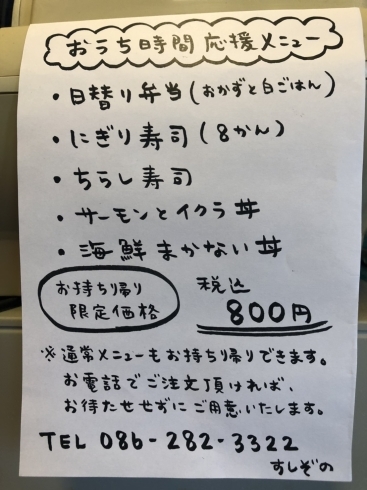 おうち時間応援メニュー
・日替り弁当(おかずと白ごはん)
・にぎり寿司(8かん)
・ちらし寿司
・サーモンとイクラ丼
・海鮮まかない丼
お持ち帰り
限定価格
税込
800円
※通常メニューもお持ち帰りできます。
お電話でご注文頂ければ、
お待たせせずにご用意いたします。
TEL 086-282-3322
すしぞの